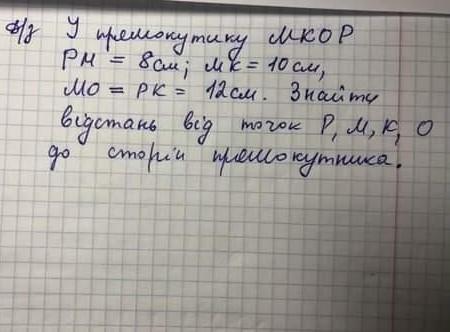 д/з У прямокутику МКОР
РМ = 8см; МК = 10см,
МО = РК = 12см. Знайти
відстань від точок Р, М, К, О
до сторін прямокутника.